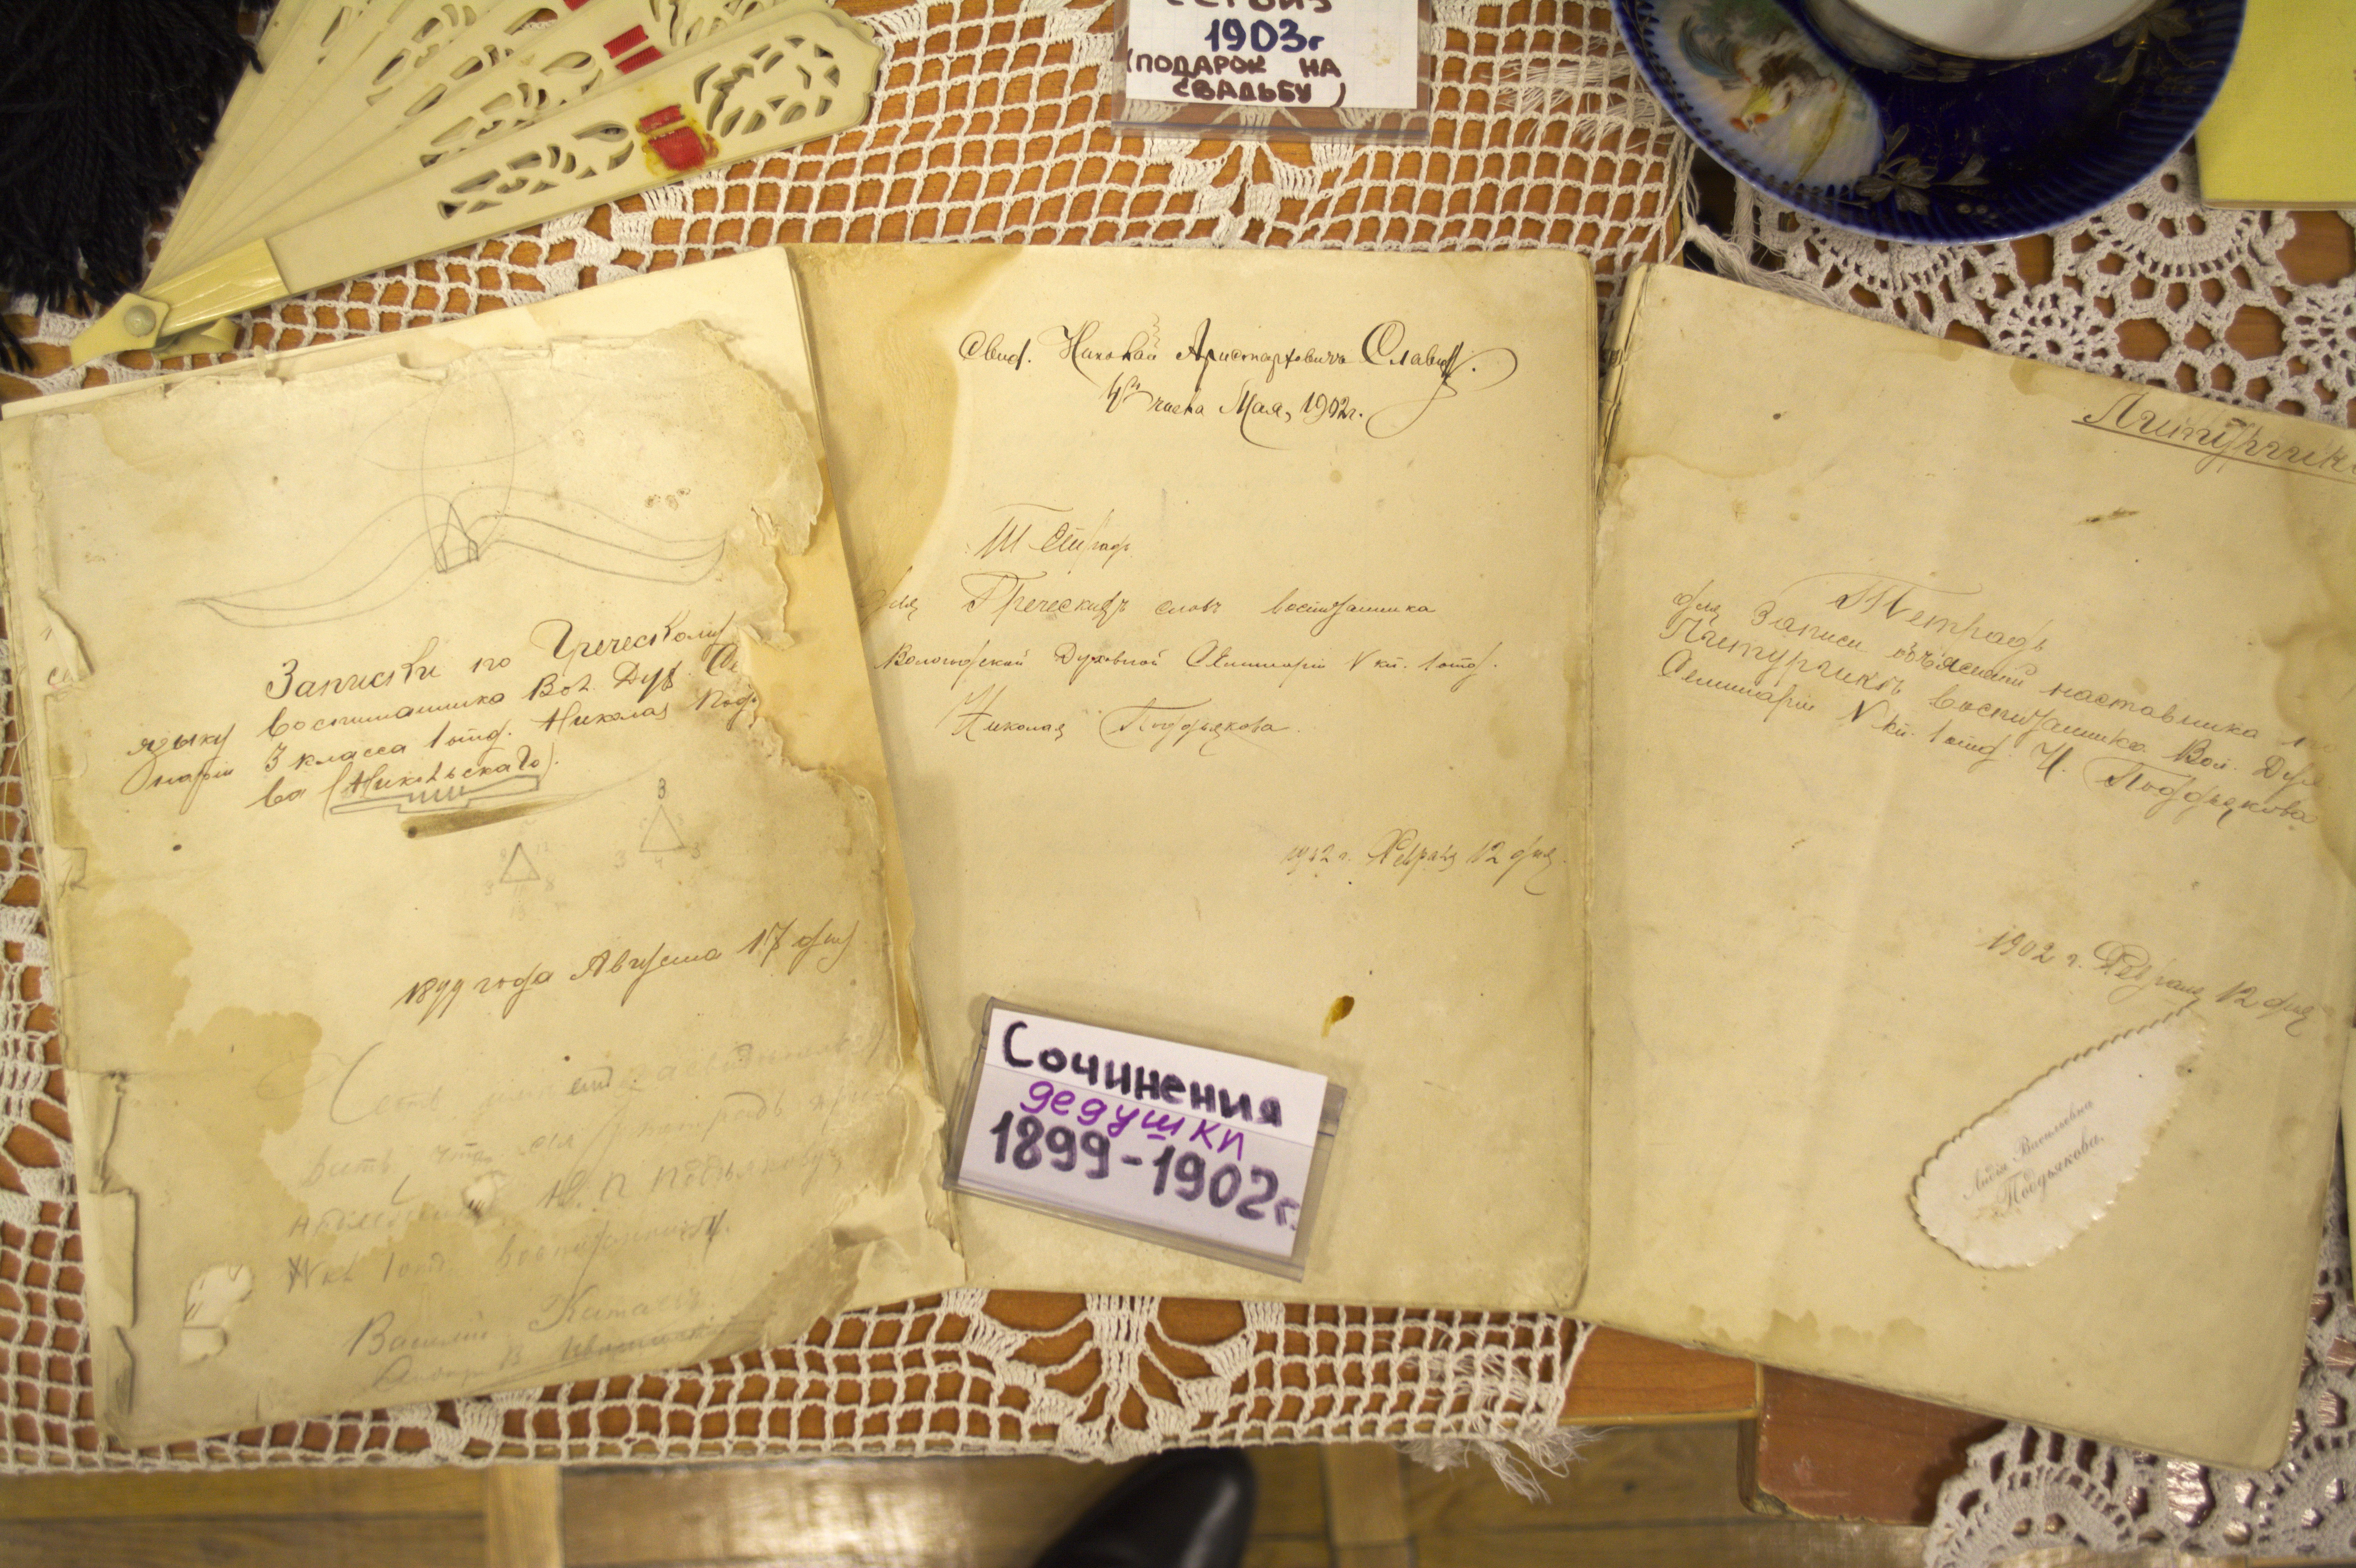 1903г
(ПОДАРОК НА
СВАДЬБУ)
Записки по Греческому
языку воспитанника Вол. Дух.
3 класса 1 отд. Николая Подд
ва (Никольскаго).
3
1899 года Августа 17 дня
Н. П. Поддьякову
кл 1 отд. воспитаннику.
Василий Китаевъ
Свид. Николай Аристарховичъ Славин.
числа Мая, 1902г.
Тетрадь
для Греческихъ словъ воспитанника
Вологодской Духовной Семинаріи V кл. 1 отд.
Николая Поддьякова.
1902 г. Февраля 12 дня.
Сочинения
дедушки
1899-1902г.
Литургика
Тетрадь
для записи объясненій наставника по
Литургикѣ воспитанника Вол. Дух.
Семинаріи V кл. 1 отд. Н. Поддьякова
1902 г. Февраля 12 дня
Лидія Васильевна
Поддьякова.